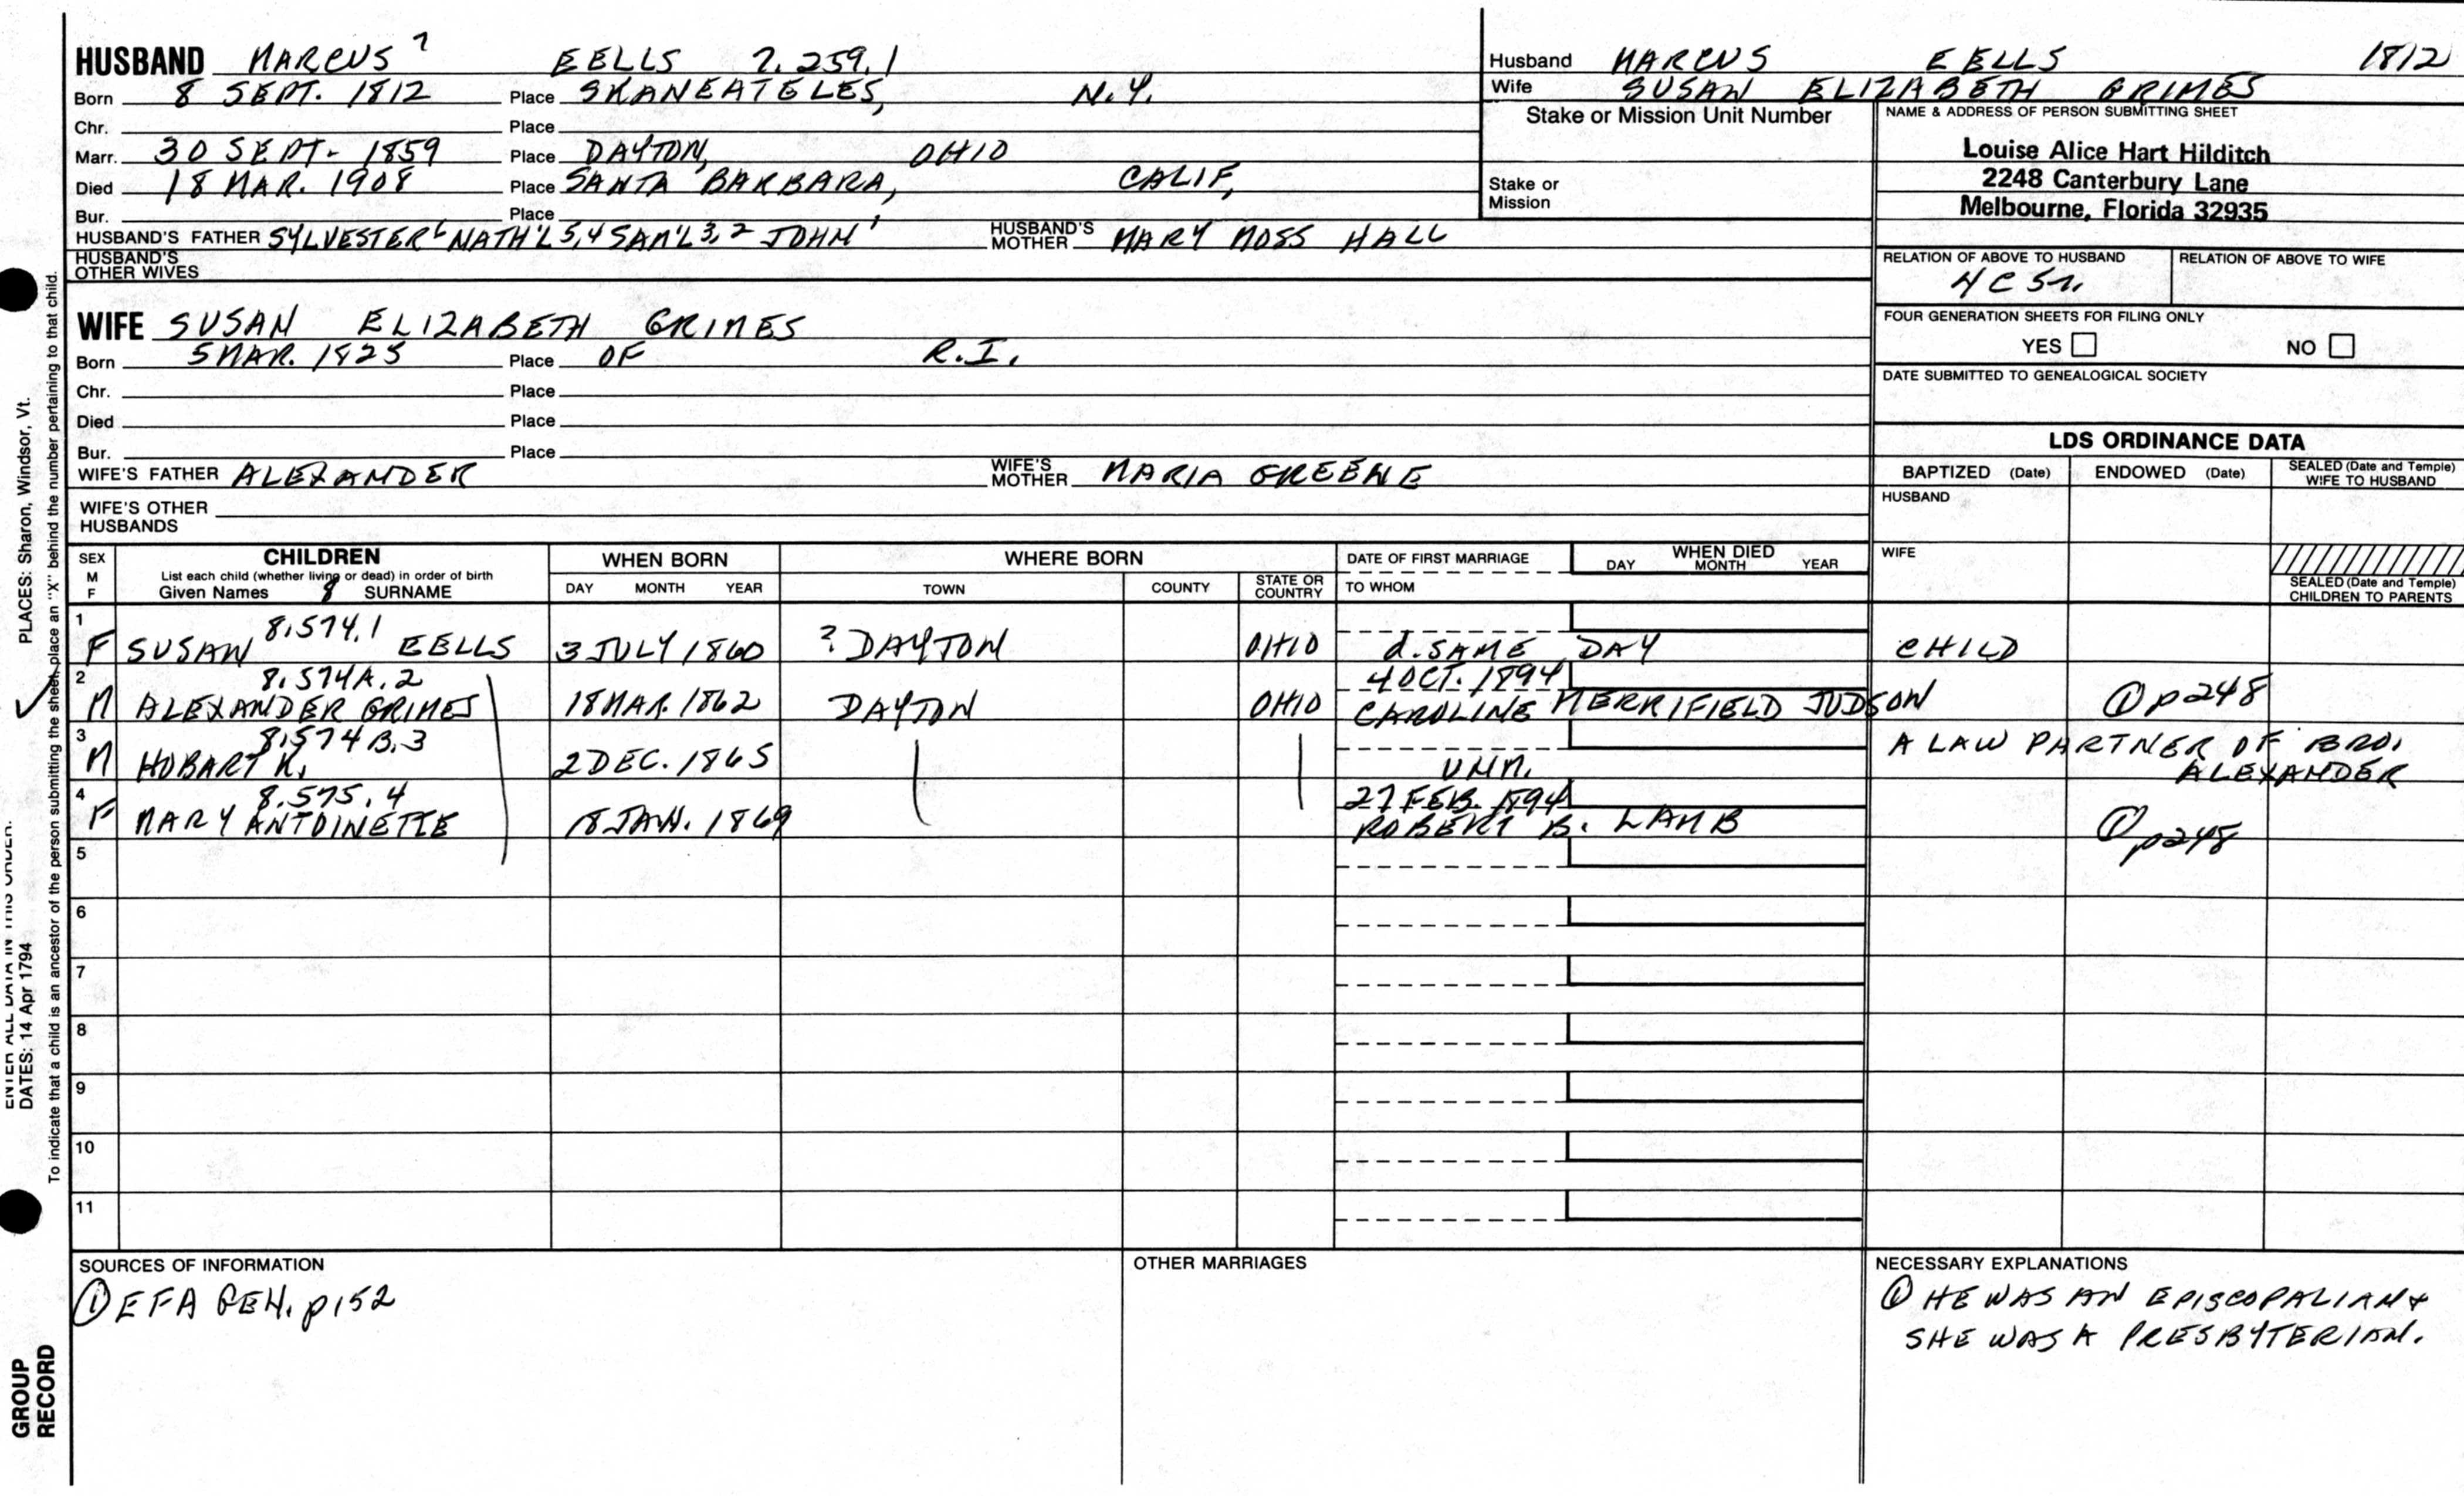 HUSBAND MARCUS 7 EELLS 7.259.1
Born 8 SEPT. 1812 Place SKANEATELES, N.Y.
Chr. Place
Marr. 30 SEPT. 1859 Place DAYTON, OHIO
Died 18 MAR. 1908 Place SANTA BARBARA, CALIF.
Bur. Place
HUSBAND'S FATHER SYLVESTER 6 NATH'L 5,4 SAM'L 3,2 JOHN 1 HUSBAND'S MOTHER MARY MOSS HALL
HUSBAND'S OTHER WIVES
WIFE SUSAN ELIZABETH GRIMES
Born 5 MAR. 1825 Place OF R.I.
Chr. Place
Died Place
Bur. Place
WIFE'S FATHER ALEXANDER WIFE'S MOTHER MARIA GREENE
WIFE'S OTHER HUSBANDS
Husband MARCUS EELLS 1812
Wife SUSAN ELIZABETH GRIMES
Stake or Mission Unit Number
Stake or
Mission
NAME & ADDRESS OF PERSON SUBMITTING SHEET
Louise Alice Hart Hilditch
2248 Canterbury Lane
Melbourne, Florida 32935
RELATION OF ABOVE TO HUSBAND RELATION OF ABOVE TO WIFE
4C5r.
FOUR GENERATION SHEETS FOR FILING ONLY
YES NO
DATE SUBMITTED TO GENEALOGICAL SOCIETY
LDS ORDINANCE DATA
BAPTIZED (Date) ENDOWED (Date) SEALED (Date and Temple) WIFE TO HUSBAND
HUSBAND
WIFE
SEALED (Date and Temple) CHILDREN TO PARENTS
SEX M F CHILDREN WHEN BORN WHERE BORN DATE OF FIRST MARRIAGE WHEN DIED
List each child (whether living or dead) in order of birth DAY MONTH YEAR
Given Names 8 SURNAME DAY MONTH YEAR TOWN COUNTY STATE OR COUNTRY TO WHOM
1 8.574.1
F SUSAN EELLS 3 JULY 1860 ? DAYTON OHIO d. SAME DAY CHILD
2 8.574A.2 4 OCT. 1894
M ALEXANDER GRIMES 18 MAR. 1862 DAYTON OHIO CAROLINE MERRIFIELD JUDSON ① p248
3 8.574B.3 A LAW PARTNER OF BRO.
M HOBART K. 2 DEC. 1865 UNM. ALEXANDER
4 8.575.4 27 FEB. 1894
F MARY ANTOINETTE 18 JAN. 1869 ROBERT B. LAMB ① p248
5
6
7
8
9
10
11
SOURCES OF INFORMATION
① EFA GEN. p152
OTHER MARRIAGES
NECESSARY EXPLANATIONS
① HE WAS AN EPISCOPALIAN &
SHE WAS A PRESBYTERIAN.
DATES: 14 Apr 1794 PLACES: Sharon, Windsor, Vt.
To indicate that a child is an ancestor of the person submitting the sheet, place an "X" behind the number pertaining to that child.
GROUP
RECORD